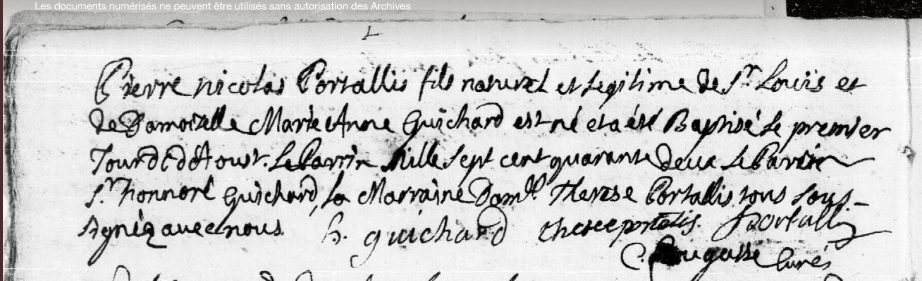 Les documents numérisés ne peuvent être utilisés sans autorisation des Archives
Pierre nicolas Portallis fils naturel et legitime de Sr. Louis et
de Damoizelle Marie Anne Guichard est né et a été Baptisé le premier
Jour d'Aoust. Le Parrin Mille Sept cent quarante deux Le Parrin
Sr. honnoré Guichard, la Marraine Damlle Therese Portallis tous sous-
signéz avec nous h. guichard therese portalis Portallis
curés